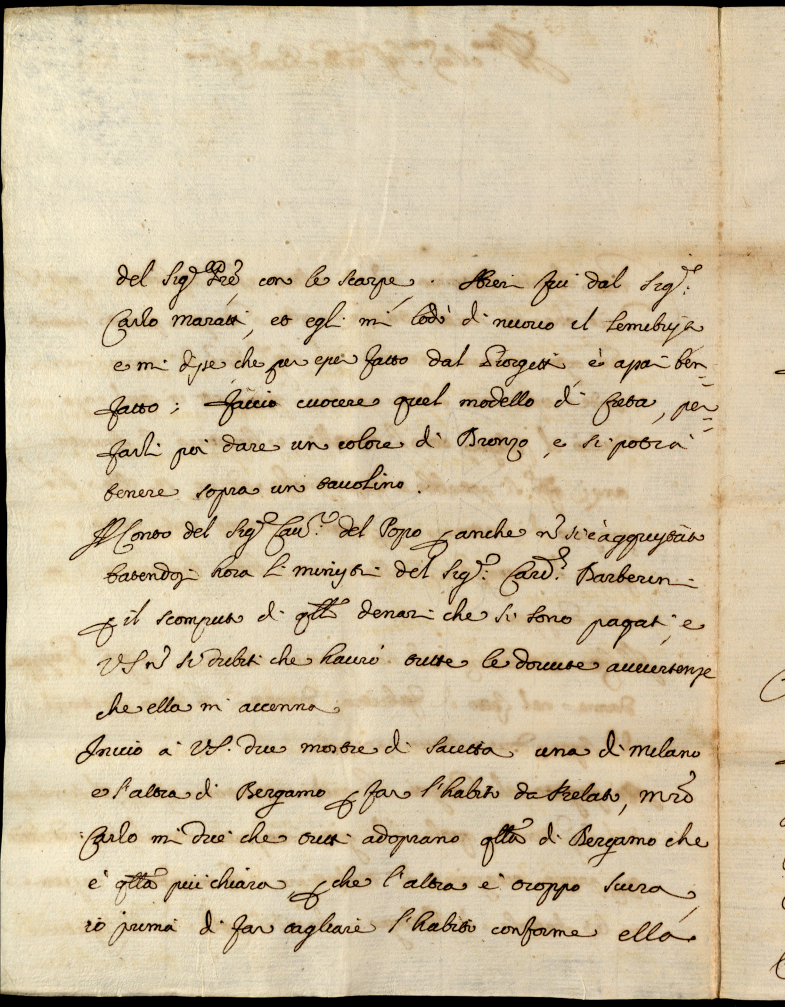 del Sig.r Pre con le scarpe. Hieri fui dal Sig.r
Carlo maratti, et egli mi lodò di nuovo il
e mi disse che per esser fatto dal Giorgetti è assai ben
fatto; faccio cuocere quel modello di Creta, per
farli poi dare un colore di Bronzo, e si potrà
tenere sopra un tavolino.
Il Conto del Sig.r Cav.re del Pozzo p anche nō si è aggiustato
batendosi hora li ministri del Sig.r Card.l Barberini
p il scomputo di qlli denari che si sono pagati, e
VS nō si dubiti che havrò tutte le dovute avvertenze
che ella mi accenna.
Invio à VS. due mostre di saietta una di milano
e l'altra di Bergamo p far l'habito da Prelato, mrō
Carlo mi dice che tutti adoprano qlla di Bergamo che
è qlla più chiara, p che l'altra è troppo scura,
io prima di far tagliare l'habito conforme ella